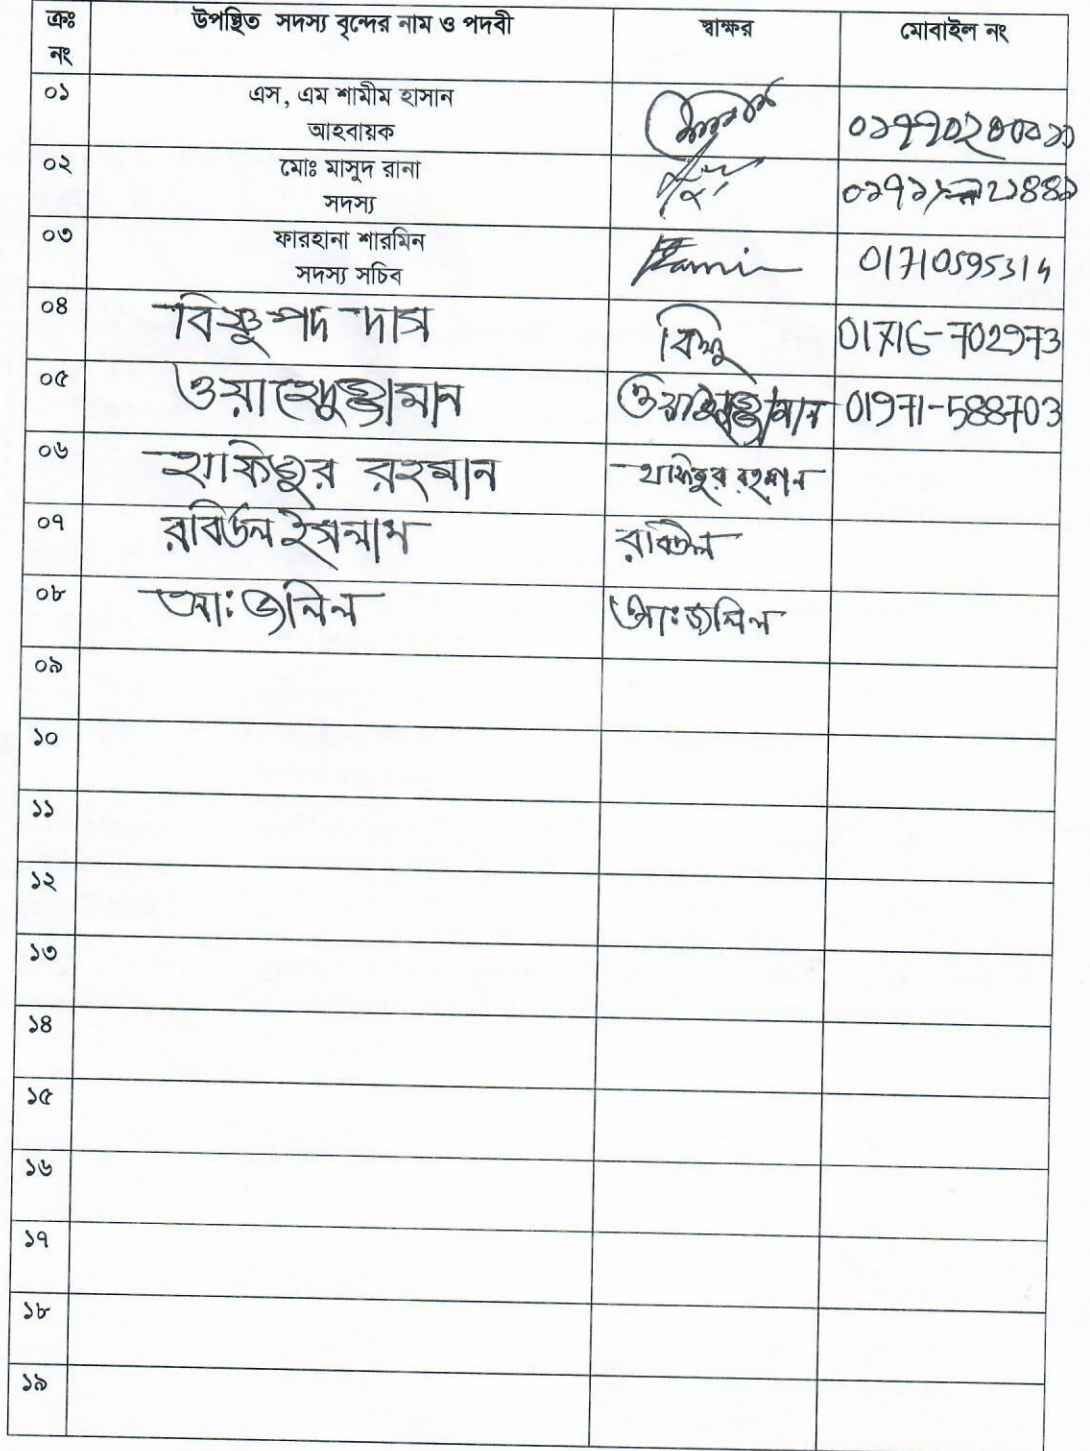 ক্রঃ নং উপস্থিত সদস্য বৃন্দের নাম ও পদবী স্বাক্ষর মোবাইল নং
০১ এস, এম শামীম হাসান
আহবায়ক
০২ মোঃ মাসুদ রানা
সদস্য
০৩ ফারহানা শারমিন
সদস্য সচিব 01710595314
০৪ বিষ্ণু পদ দাস বিষ্ণু 01716-702973
০৫ ওয়াহেদুজ্জামান ওয়াহেদুজ্জামান 01971-588703
০৬ হাফিজুর রহমান হাফিজুর রহমান
০৭ রবিউল ইসলাম রবিউল
০৮ আঃ জলিল আঃ জলিল
০৯
১০
১১
১২
১৩
১৪
১৫
১৬
১৭
১৮
১৯